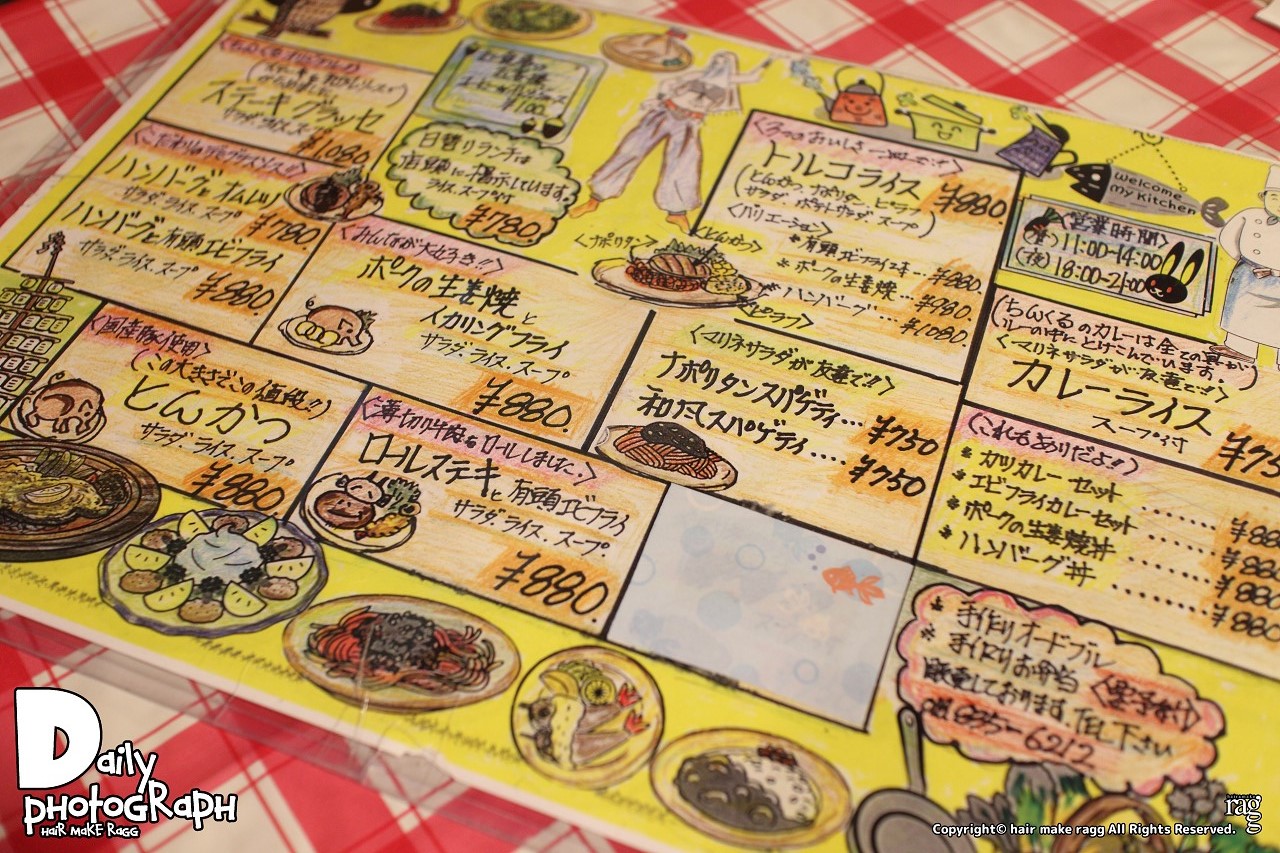 ステーキグラッセ
サラダ.ライス.スープ
¥1080.
¥100.
日替りランチは
店頭に掲示しています。
ライス.スープ付
¥780.
ハンバーグとオムレツ
サラダ.ライス.スープ
¥780
ハンバーグと有頭エビフライ
サラダ.ライス.スープ
¥880.
<みんなが大好き!!>
ポークの生姜焼と
イカリングフライ
サラダ.ライス.スープ
¥880.
<国産豚使用>
(この大きさでこの値段!!)
とんかつ
サラダ.ライス.スープ
¥880
ロールステーキと有頭エビフライ
サラダ.ライス.スープ
¥880.
トルコライス
¥880
(とんかつ、ナポリタン、ピラフ
サラダ、ポテトサラダ、スープ)
<バリエーション>
*有頭エビフライ
¥880.
*ポークの生姜焼…
¥980.
ハンバーグ…
¥1080.
<ナポリタン>
<とんかつ>
<ピラフ>
<マリネサラダが友達で!!>
ナポリタンスパゲティ…
¥750
和風スパゲティ....
¥750
welcome
my kitchen
<営業時間>
(昼)11:00-14:00
(夜)18:00-21:00
(ちんくるのカレーは全ての具が
ルーの中にとけこんでいます。)
<マリネサラダが友達です!>
カレーライス
スープ付
<これもありだよ!!>
*カツカレーセット
*エビフライカレーセット
*ポークの生姜焼丼
*ハンバーグ丼
*手作りオードブル
*手作りお弁当
<要予約>
TEL下さい
6212
Daily
photograph
hair make ragg
ragg
Copyright© hair make ragg All Rights Reserved.